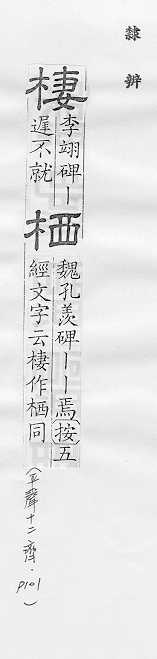 隸辨
棲
李翊碑｜
遲不就
栖
魏孔羨碑｜｜焉(按)五
經文字云棲作栖同
(平聲十二齊．p101)